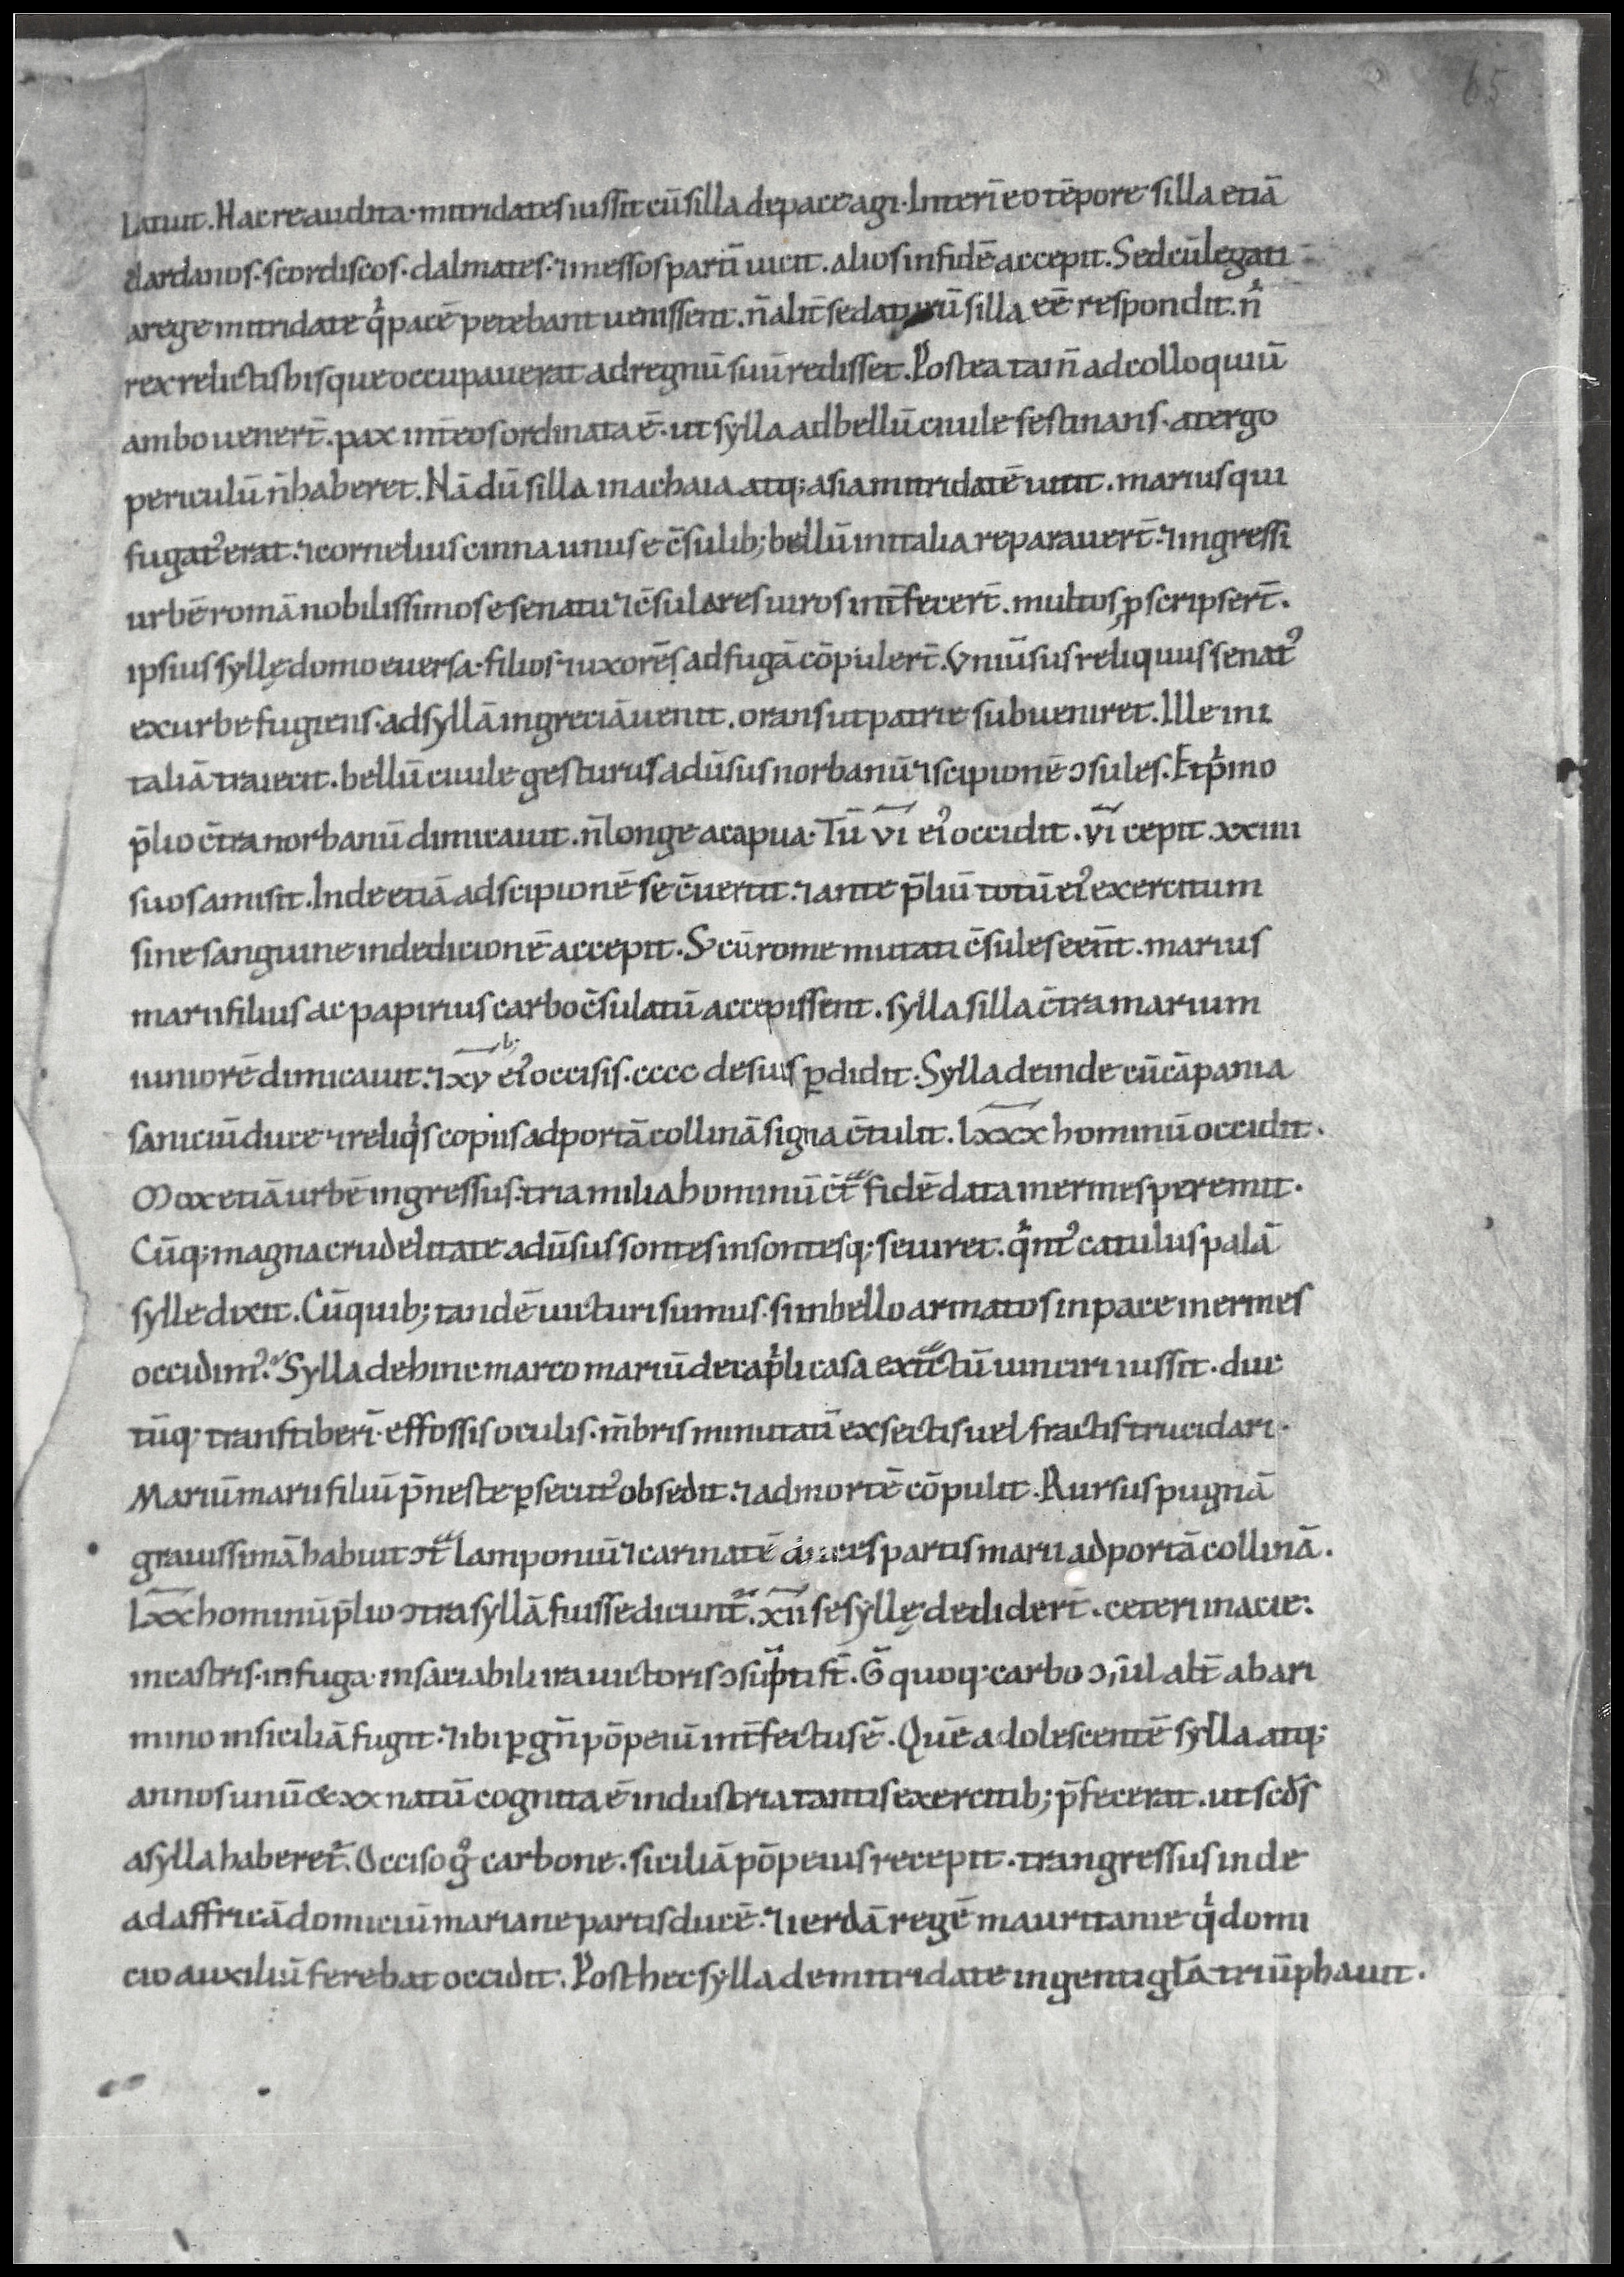 65
Latuit. Hac re audita. mitridates iussit cū silla de pace agi. Interī eo tēpore silla etiā
dardanos. scordiscos. dalmates. ⁊ messos partī uicit. alios in fidē accepit. Sed cū legati
a rege mitridate q̇ pacē petebant uenissent. n̄ alit̄ se daturū silla eē respondit. n̓
rex relictis his que occupauerat ad regnū suū redisset. Postea tam̄ ad colloquiū
ambo uenert̄. pax int̄ eos ordinata ē. ut sylla ad bellū ciuile festinans. a tergo
periculū n̄ haberet. Nā dū silla in achaia atq; asia mitridatē uicit. marius qui
fugat᾽ erat. ⁊ cornelius cinna unus e c̄sulib; bellū in italia reparauert̄. ⁊ ingressi
urbē romā nobilissimos e senatu ⁊ c̄sulares uiros int̄fecert̄. multos ꝓscripsert̄.
ipsius syllę domo euersa. filios ⁊ uxorēs ad fugā cōpulert̄. Vniūsus reliquus senat᾽
ex urbe fugiens. ad syllā in greciā uenit. orans ut patrie subueniret. Ille in i
taliā traiecit. bellū ciuile gesturus adūsus norbanū ⁊ scipionē ɔsules. Et p̓mo
p̄lio c̄tra norbanū dimicauit. n̄ longe a capua. Tū v̄ī ei᾽ occidit. v̄ī cepit. xxiiii
suos amisit. Inde etiā ad scipionē se c̄uertit. ⁊ ante p̄liū totū ei᾽ exercitum
sine sanguine in dedicionē accepit. S; cū rome mutati c̄sules eēnt̄. marius
marii filius ac papirius carbo c̄sulatū accepissent. sylla silla c̄tra marium
iuniorē dimicauit. ⁊ x̄v̄ ei᾽ occisis. cccc de suis ꝑdidit. Sylla deinde cū cāpania
saniciū duce ⁊ reliq̓s copiis ad portā collinā signa c̄tulit. l̄x̄x̄x̄ hominū occidit.
Mox etiā urbē ingressus. tria milia hominū c̄t̄ª fidē data inermes peremit.
Cūq; magna crudelitate adūsus sontes insontesq; seuiret. q̓nt᾽ catulus palā
sylle dixit. Cū quib; tandē uicturi sumus. si in bello armatos in pace inermes
occidim᾽. Sylla dehinc marco mariū de cap̓li casa ext̄ctū uinciri iussit. duc
tūq; transtiberī. effossis oculis. m̄bris minutatī exsectis uel fractis trucidari.
Mariū marii filiū p̄neste ꝑsecut᾽ obsedit. ⁊ ad mortē cōpulit. Rursus pugnā
grauissimā habuit ɔt̄ª lamponiū ⁊ carinatē duces partis marii ad portā collinā.
l̄x̄x̄ hominū p̄lio ɔtra syllā fuisse dicunt̄. x̄īī se syllę dedidert̄. ceteri in acie.
in castris. in fuga. insaciabili ira uictoris ɔsūpti st̄. G̅ quoq; carbo ɔsūl alt̄ ab ari
mino in siciliā fugit. ⁊ ibi ꝑ gn̄ pōpeiū int̄fectus ē. Quē adolescentē sylla atq;
annos unū & xx natū cognita ē industria tantis exercitib; p̄fecerat. ut scd̄s
a sylla haberet̄. Occiso g̊ carbone. siciliā pōpeius recepit. trangressus inde
ad affricā domiciū mariane partis ducē. ⁊ ierdā regē mauritanie q̇ domi
cio auxiliū ferebat occidit. Post hec sylla de mitridate ingenti gl̄a triūphauit.